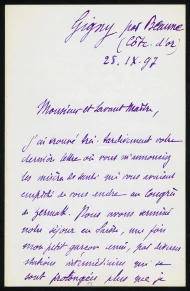 Gigny par Beaune
(Côte d'or)
25. IX. 97
Monsieur et savant Maître,
J'ai trouvé très tardivement votre
dernière lettre où vous m'annoncez
les motifs de santé qui vous avaient
empêché de vous rendre au Congrès
de Zermatt. Nous avons terminé
notre séjour en Suisse, une fois
mon petit garçon remis, par diverses
stations intermédiaires qui se
sont prolongées plus que je